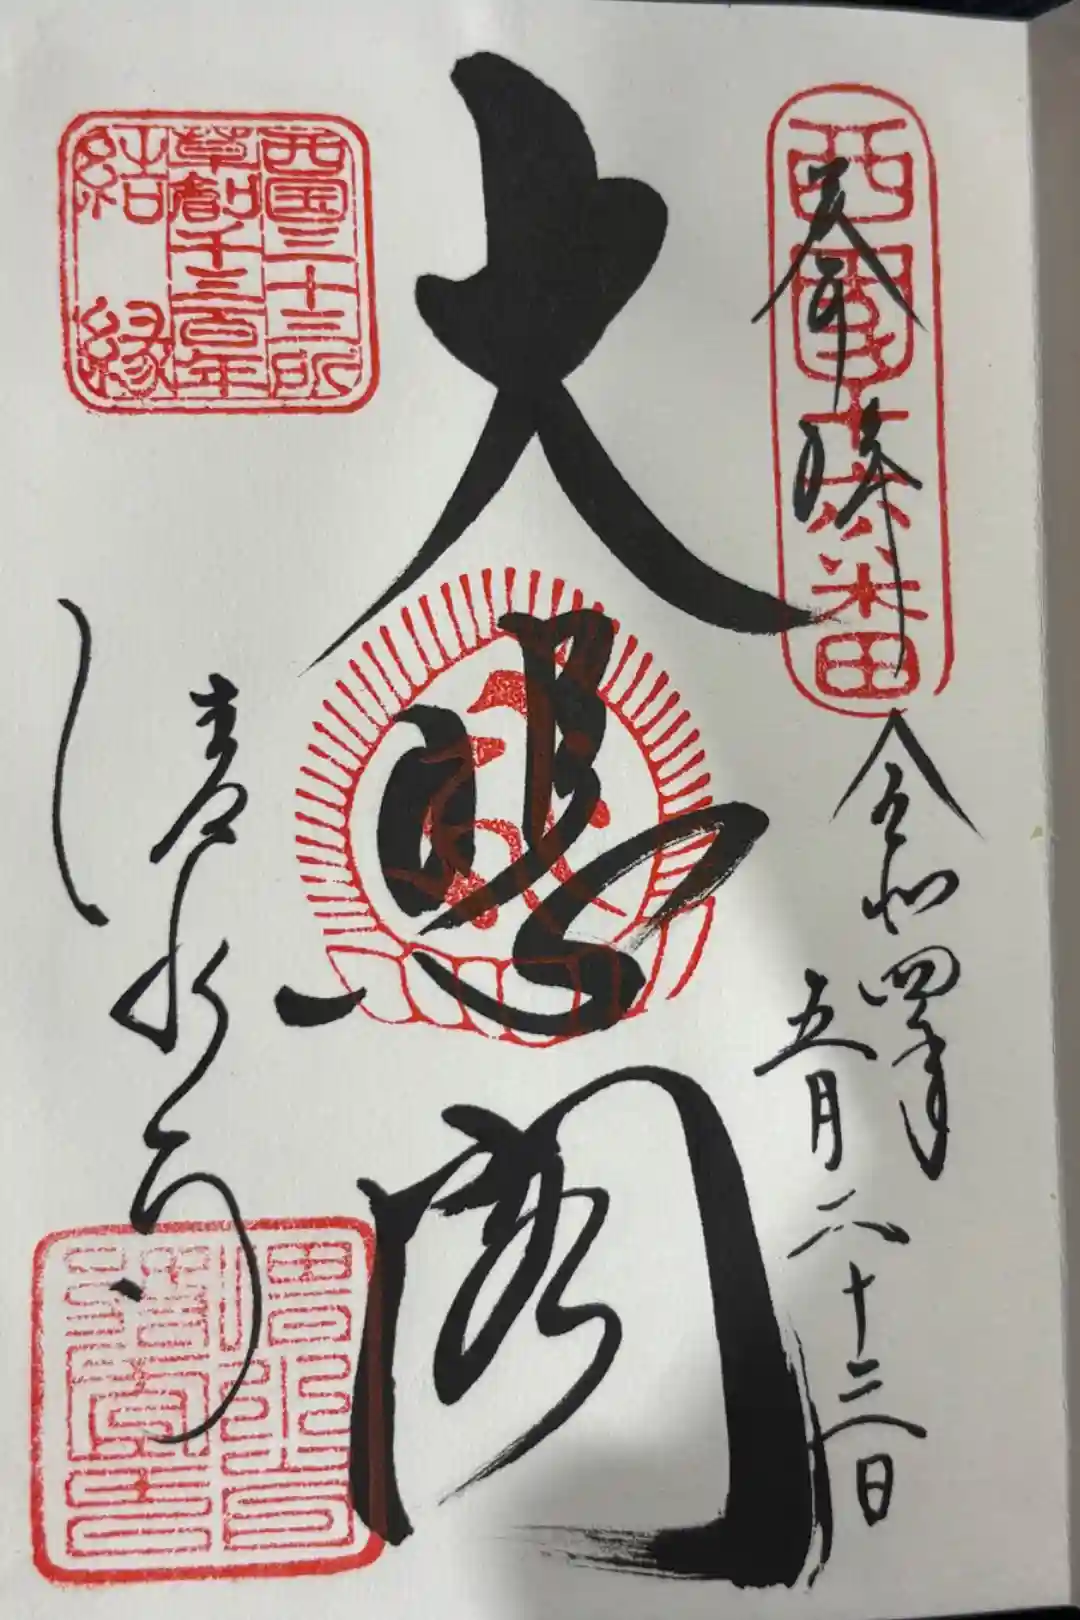 奉拝
西国十六番
令和四年
五月二十三日
大悲閣
清水寺
西国三十三所
草創千三百年
結縁